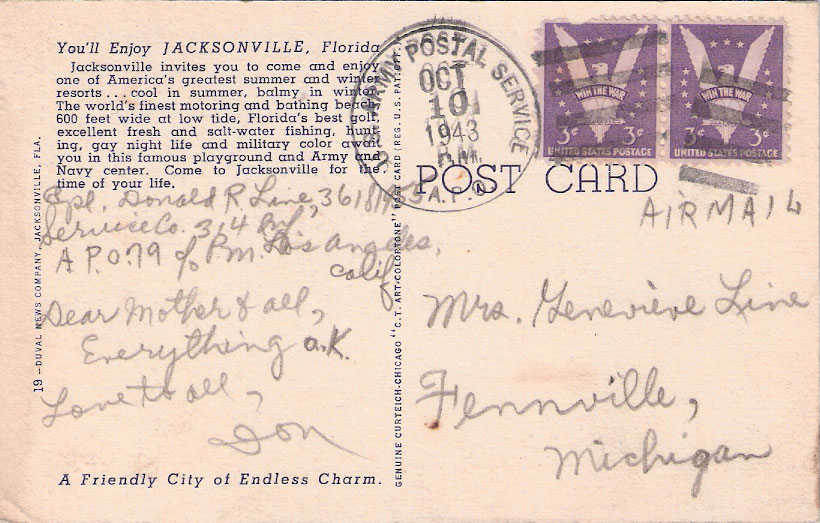 You'll Enjoy JACKSONVILLE, Florida
Jacksonville invites you to come and enjoy
one of America's greatest summer and winter
resorts ... cool in summer, balmy in winter.
The world's finest motoring and bathing beach,
600 feet wide at low tide, Florida's best golf,
excellent fresh and salt-water fishing, hunt-
ing, gay night life and military color await
you in this famous playground and Army and
Navy center. Come to Jacksonville for the
time of your life.
Cpl. Donald R Line,
Service Co. 314 Inf,
A.P.O. 79 c/o P.M. Los Angeles,
Calif
Dear Mother & all,
Everything O.K.
Love to all,
Don
A Friendly City of Endless Charm.
19—DUVAL NEWS COMPANY, JACKSONVILLE, FLA.
GENUINE CURTEICH-CHICAGO "C.T. ART-COLORTONE" POST CARD (REG. U.S. PAT. OFF.)
U.S. ARMY POSTAL SERVICE
OCT
10
1943
A.P.O.
WIN THE WAR
3¢ 3¢
UNITED STATES POSTAGE
WIN THE WAR
3¢ 3¢
UNITED STATES POSTAGE
POST CARD
AIRMAIL
Mrs. Genevieve Line
Fennville,
Michigan